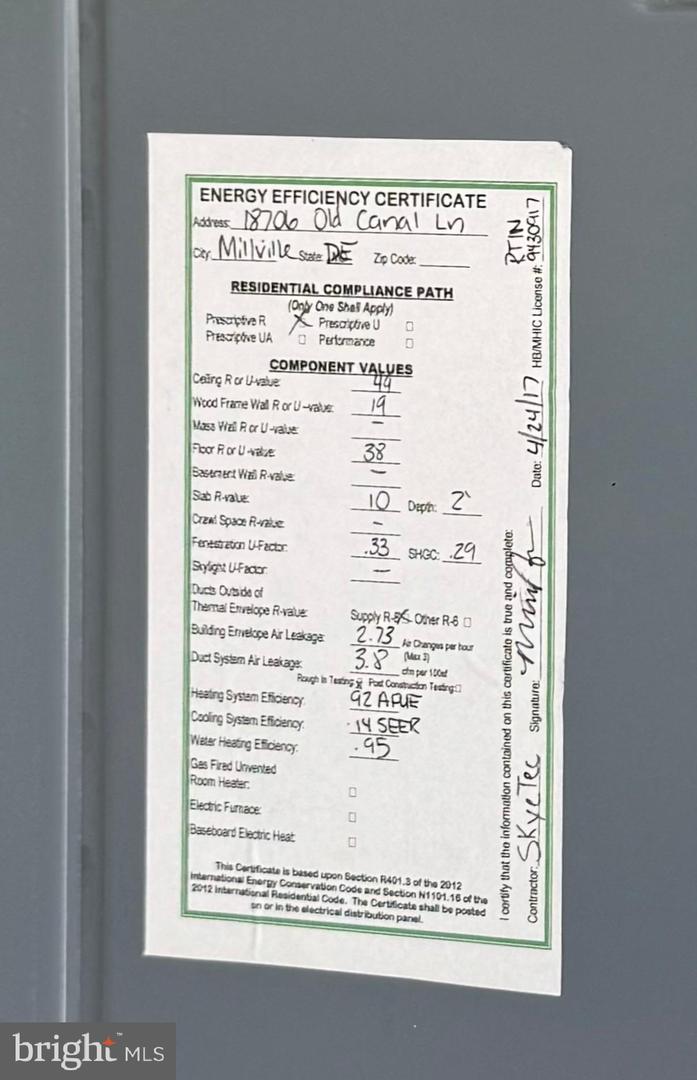 ENERGY EFFICIENCY CERTIFICATE
Address: 18706 Old Canal Ln
City: Millville State: DE Zip Code:
RESIDENTIAL COMPLIANCE PATH
(Only One Shall Apply)
Prescriptive R X Prescriptive U ☐
Prescriptive UA ☐ Performance ☐
COMPONENT VALUES
Ceiling R or U-value: 49
Wood Frame Wall R or U-value: 19
Mass Wall R or U-value: -
Floor R or U-value: 38
Basement Wall R-value: -
Slab R-value: 10 Depth: 2'
Crawl Space R-value: -
Fenestration U-Factor: .33 SHGC: .29
Skylight U-Factor: -
Ducts Outside of
Thermal Envelope R-value: Supply R-8 X Other R-6 ☐
Building Envelope Air Leakage: 2.73 Air Changes per hour
(Max 3)
Duct System Air Leakage: 3.8 cfm per 100sf
Rough In Testing ☒ Post Construction Testing ☐
Heating System Efficiency: 92 AFUE
Cooling System Efficiency: 14 SEER
Water Heating Efficiency: .95
Gas Fired Unvented
Room Heater: ☐
Electric Furnace: ☐
Baseboard Electric Heat: ☐
This Certificate is based upon Section R401.3 of the 2012
International Energy Conservation Code and Section N1101.16 of the
2012 International Residential Code. The Certificate shall be posted
on or in the electrical distribution panel.
I certify that the information contained on this certificate is true and complete:
Contractor: SkyeTec Signature: Date: 4/24/17 HB/MHIC License #: RTIN
9430917
bright™ MLS